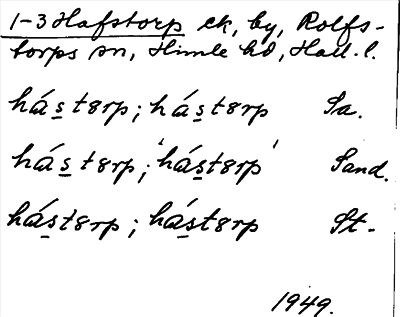 1-3 Hafstorp ek, by, Rolfs-
torps sn, Himle hd, Hall. l.
hástørp; hástørp Sa.
hástørp; 'hástørp' Sand.
hástørp; hástørp St.
1949.